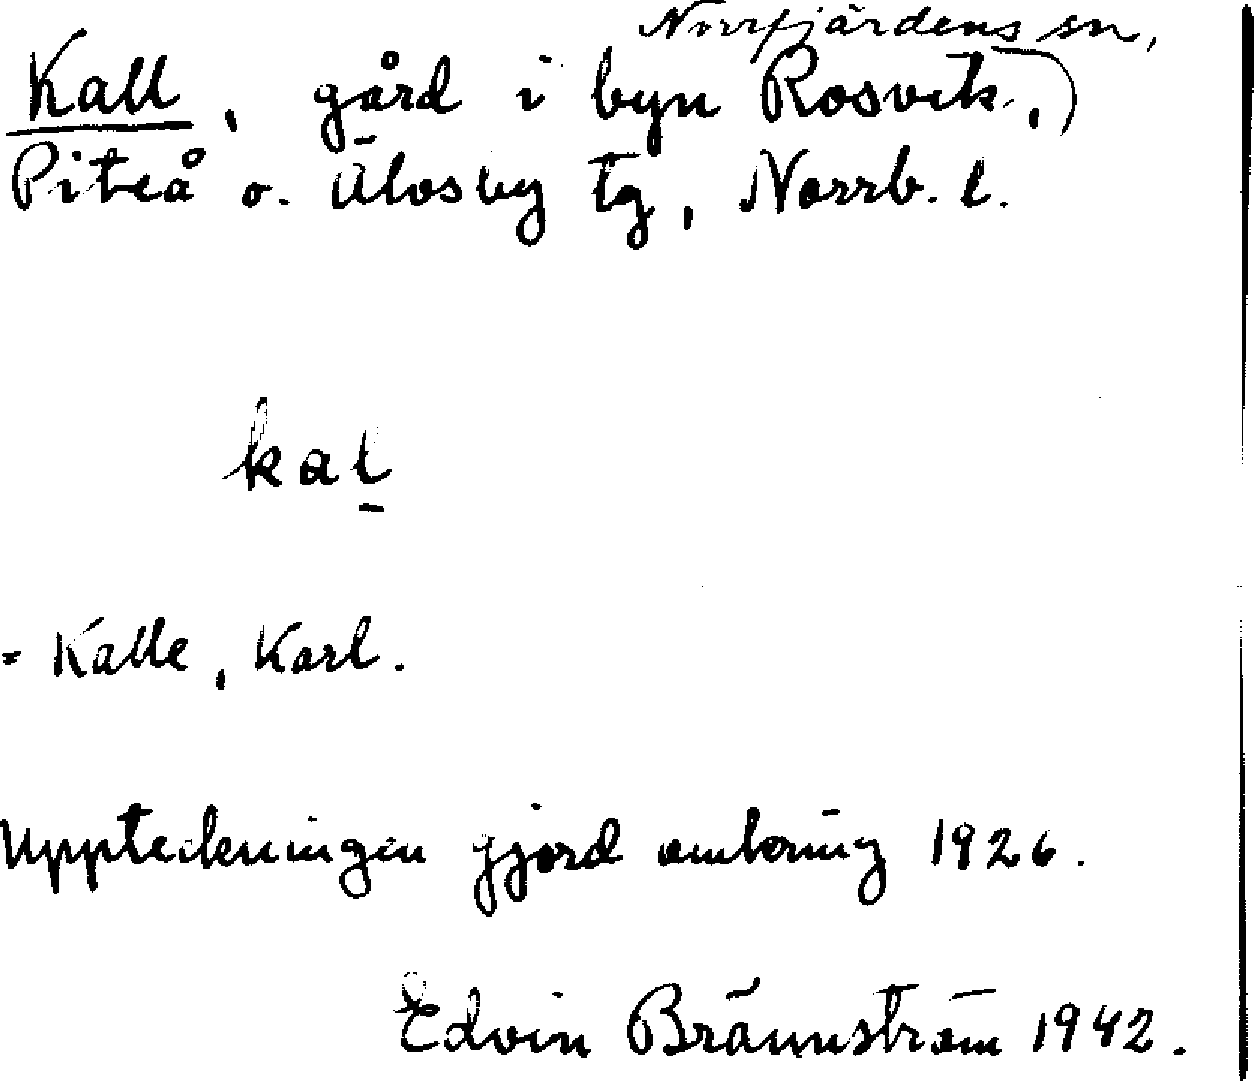 Norrfjärdens sn,
Kall, gård i byn Rosvik,)
Piteå o. Älvsby tg, Norrb. l.
kal̲
= Kalle, Karl.
Uppteckningen gjord omkring 1926.
Edvin Brännström 1942.